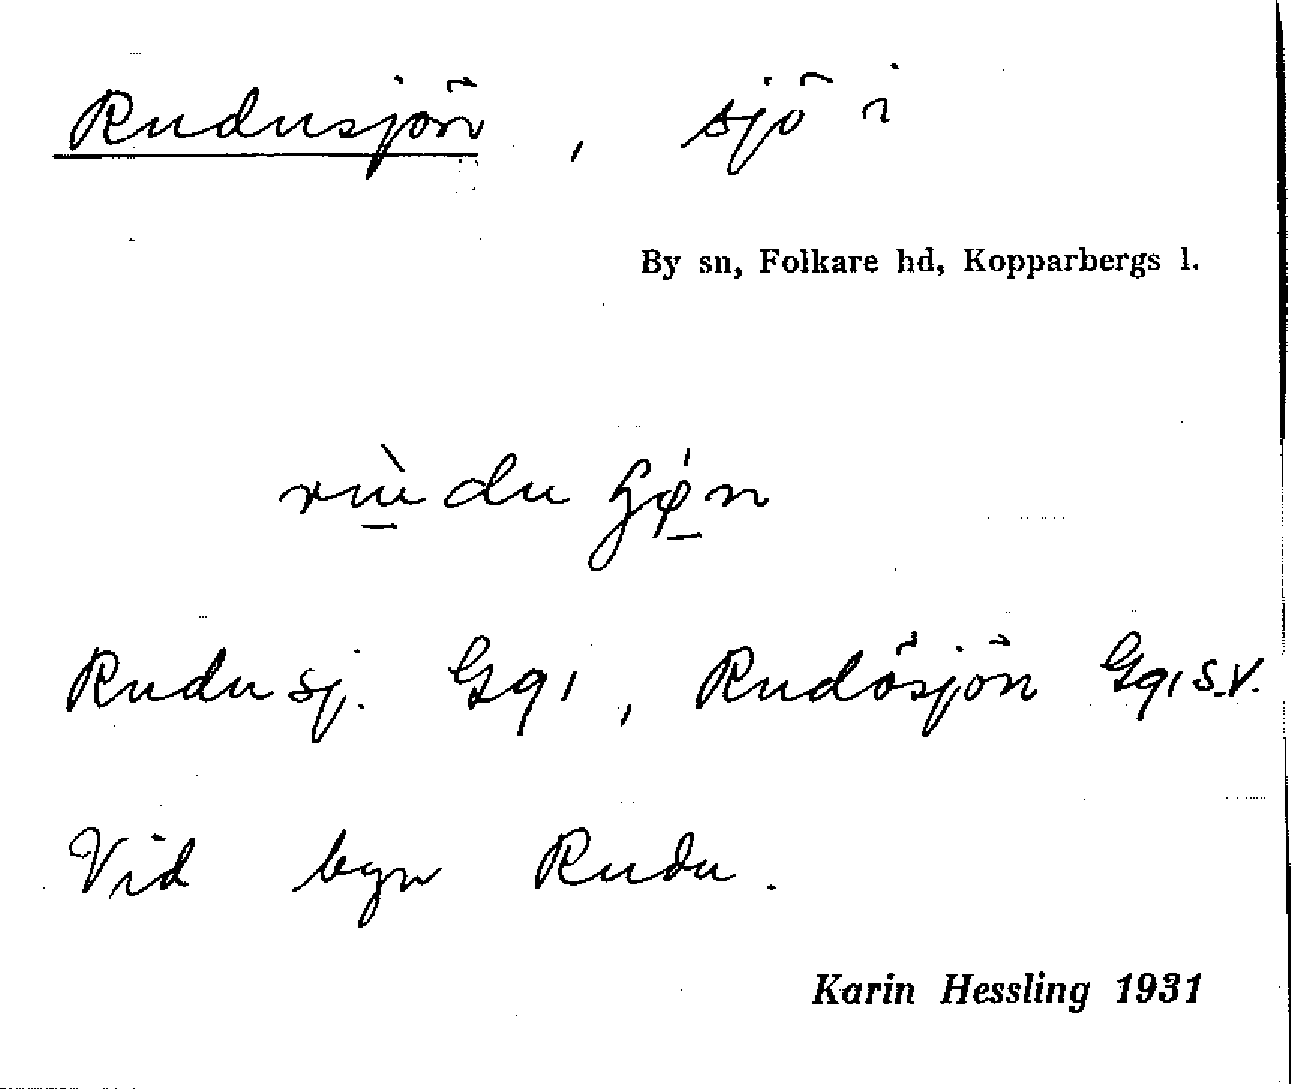 Rudusjön, sjö i
By sn, Folkare hd, Kopparbergs l.
Rudusj. Gq1, Rudösjön Gq1 s.v.
Vid byn Rudu.
Karin Hessling 1931